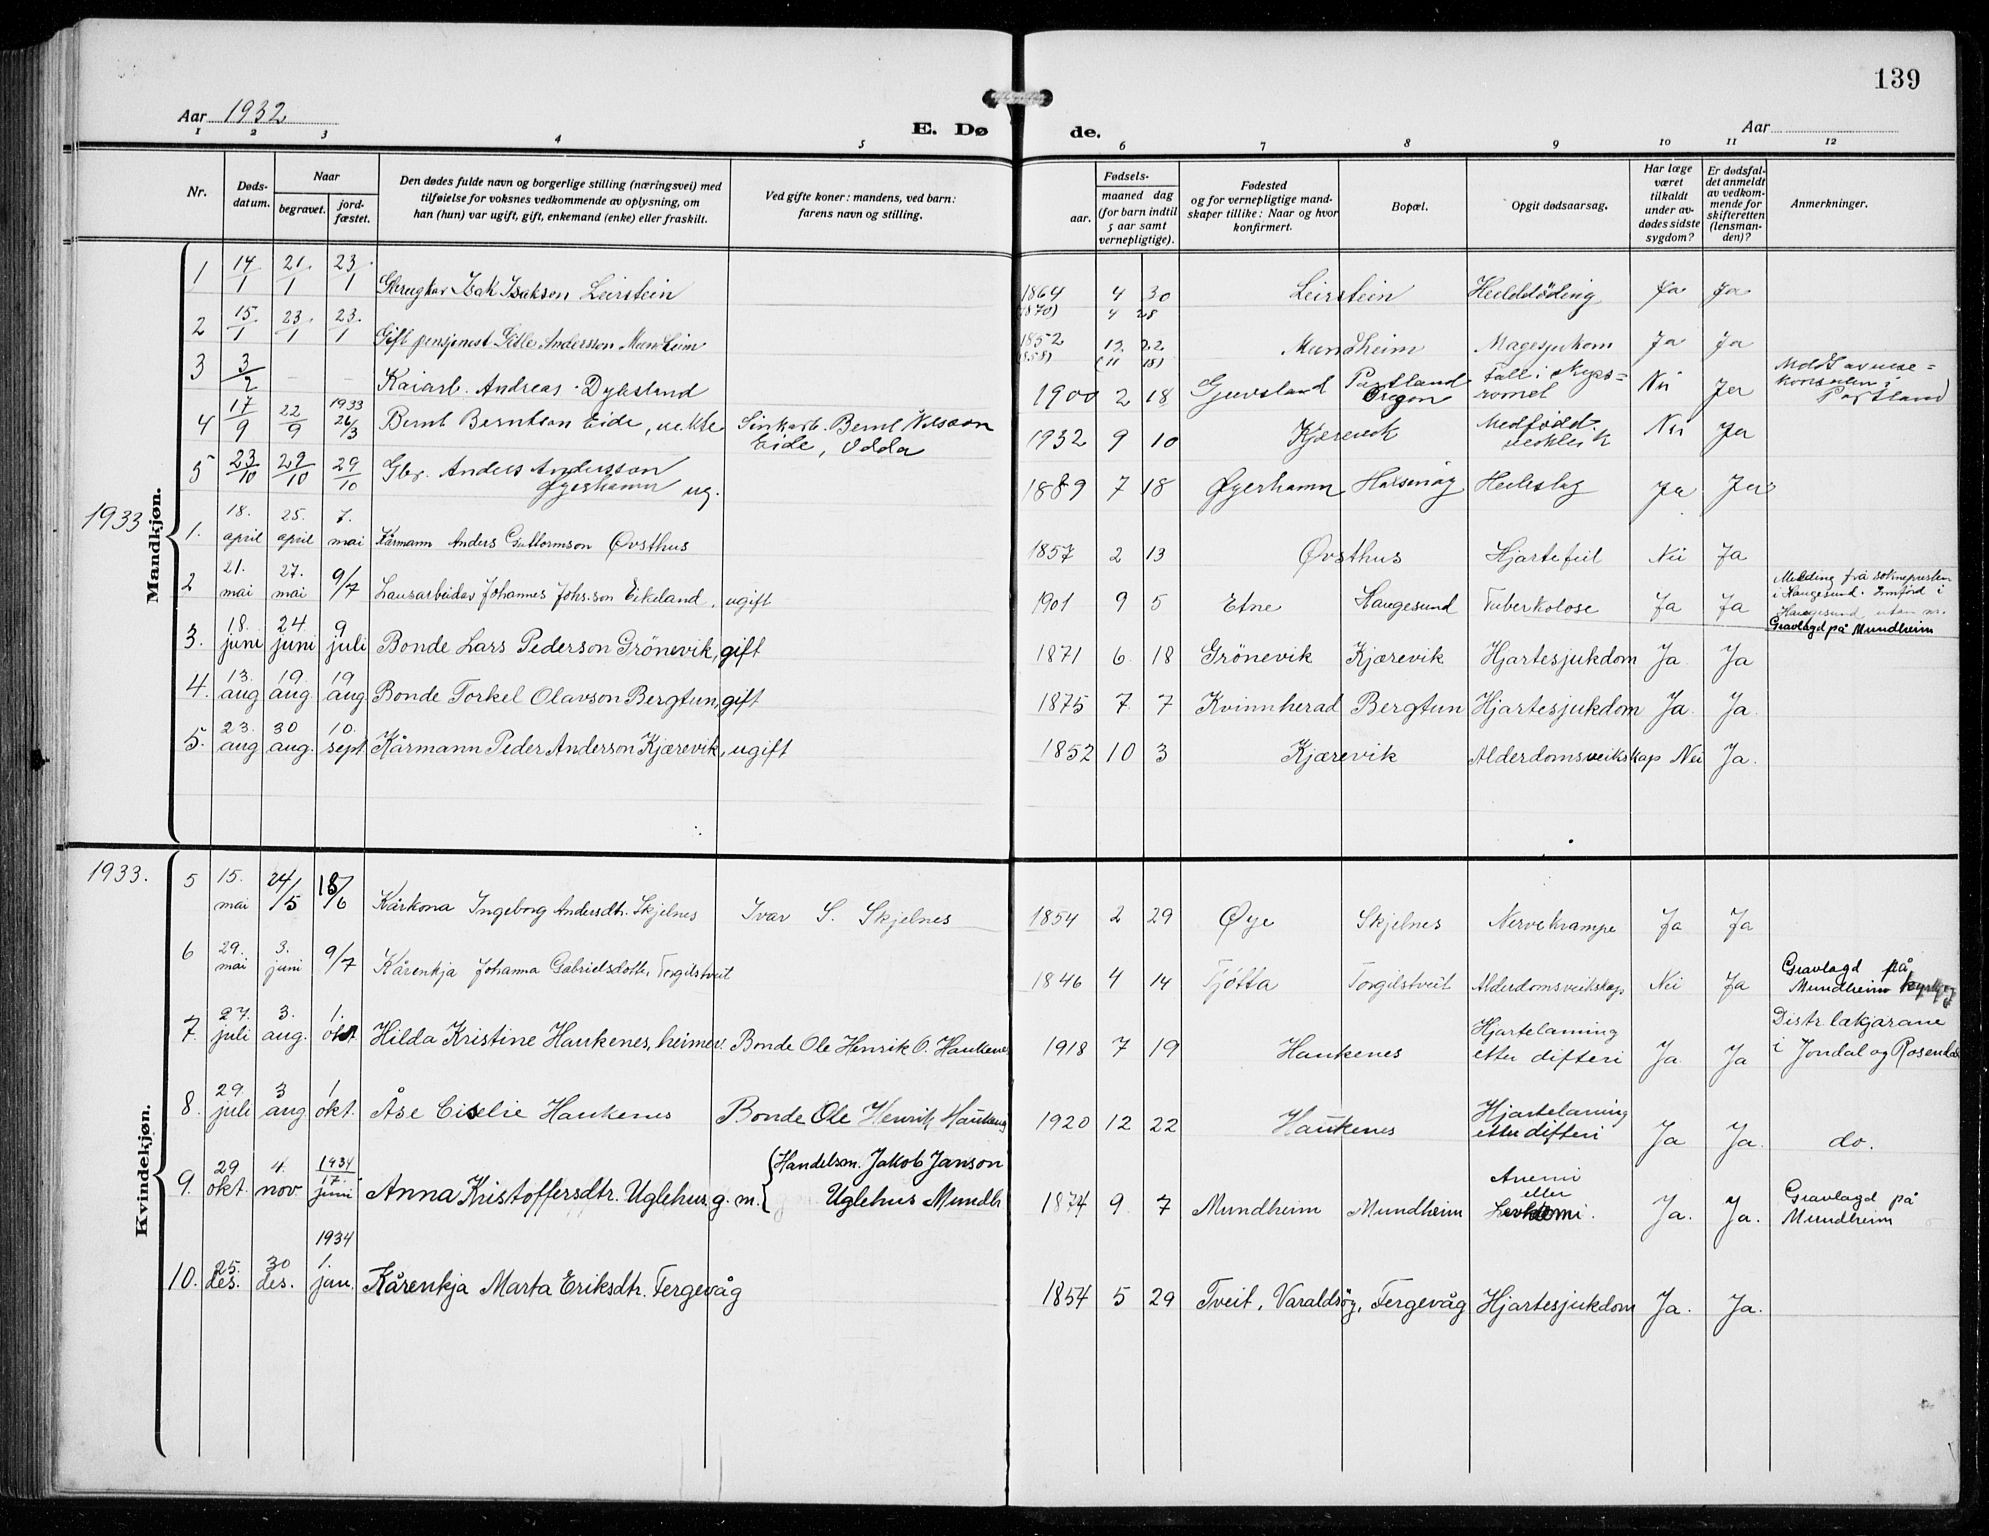 139
Aar 1932
E. Dø de.
Aar
1 2 3 4 5 6 7 8 9 10 11 12
Nr.
Døds-
datum.
Naar
begravet.
jord-
fæstet.
Den dødes fulde navn og borgerlige stilling (næringsvei) med
tilføielse for voksnes vedkommende av oplysning, om
han (hun) var ugift, gift, enkemand (enke) eller fraskilt.
Ved gifte koner: mandens, ved barn:
farens navn og stilling.
Fødsels-
aar.
maaned dag
(for barn indtil
5 aar samt
vernepligtige).
Fødested
og for vernepligtige mand-
skaper tillike: Naar og hvor
konfirmert.
Bopæl.
Opgit dødsaarsag.
Har læge
været
tilkaldt
under av-
dødes sidste
sygdom?
Er dødsfal-
det anmeldt
av vedkom-
mende for
skifteretten
(lensman-
den)?
Anmerkninger.
Mandkjøn.
1 14/1 21/1 23/1 Gbrugkar Isak Isakson Leirstein 1864 4 30 Leirstein Heilddöding Ja Ja
(1870) 4 28
2 15/1 23/1 23/1 Gift pensjonist Gitle Andersson Mundheim 1852 12 22 Mundheim Magesjukdom Ja Ja
(1858) (11 18)
3 3/2 – – Kaiarb. Andreas Dyksland 1900 2 18 Gjuvsland Portland Oregon Fall i skyps=
romet Nei Ja Meldt av
konsulen i
Portland
4 17/9 22/9 1933 26/3 Bernt Berntson Eide, uekte Sinkarb. Bernt Nilsson
Eide, Odda 1932 9 10 Kjærevik Medfødd
veikleik Nei Ja
5 23/10 29/10 29/10 Gbr. Anders Andersson
Øyerhamn ug. 1889 7 18 Øyerhamn Halsenøy Heileslag Ja Ja
1933
1. 18. april 25. april 7. mai Kårmann Anders Guttormson Øvsthus 1857 2 13 Øvsthus Hjartefeil Nei Ja
2 21. mai 27. mai 9/7 Lausarbeidar Johannes Johs.son Eikeland, ugift 1901 9 5 Etne Haugesund Tuberkolose Ja Ja Melding frå soknepresten
i Haugesund. Innförd i
Haugesund utan nr.
Gravlagd på Mundheim
3. 18. juni 24 juni 9 juli Bonde Lars Pederson Grönevik, gift 1871 6 18 Grönevik Kjærevik Hjartesjukdom Ja Ja
4. 13. aug 19. aug. 19 aug Bonde Torkel Olavson Bergtun, gift 1875 7 7 Kvinnherad Bergtun Hjartesjukdom Ja. Ja.
5. 23. aug 30 aug. 10. sept Kårmann Peder Anderson Kjærevik, ugift 1852 10 3 Kjærevik Alderdomsveikskap Nei Ja.
Kvindekjøn.
1933.
5 15. mai 24/5 18/6 Kårkona Ingeborg Andersdtr. Skjelnes Ivar S. Skjelnes 1854 2 29 Øye Skjelnes Nervekrampe Ja Ja
6 29. mai 3. juni 9/7 Kårenkja Johanna Gabrielsdotter Torgilstveit 1846 4 14 Tjøtta Torgilstveit Alderdomsveikskap Nei Ja Gravlagd på
Mundheim
7. 27. juli 3. aug. 1. okt Hilda Kristine Haukenes, heimev. Bonde Ole Henrik O. Haukenes 1918 7 19 Haukenes Hjartelaming
etter difteri Ja Ja Distr. lækjarane
i Jondal og Rosendal
8. 29 juli 3 aug 1. okt. Åse Ciselie Haukenes Bonde Ole Henrik Haukenes 1920 12 22 Haukenes Hjartelaming
etter difteri Ja Ja. do.
9. 29 okt. 4. nov. 1934 17. juni Anna Kristoffersdtr. Uglehus, g. m. Handelsm. Jakob Janson
Uglehus Mundh 1874 9 7 Mundheim Mundheim Anemi
eller
Levkemi. Ja. Ja. Gravlagd på
Mundheim
10. 25. des. 30 des. 1934 1. jan. Kårenkja Marta Eriksdtr. Fergevåg 1854 5 29 Tveit, Varaldsøy, Fergevåg Hjartesjukdom Ja. Ja.